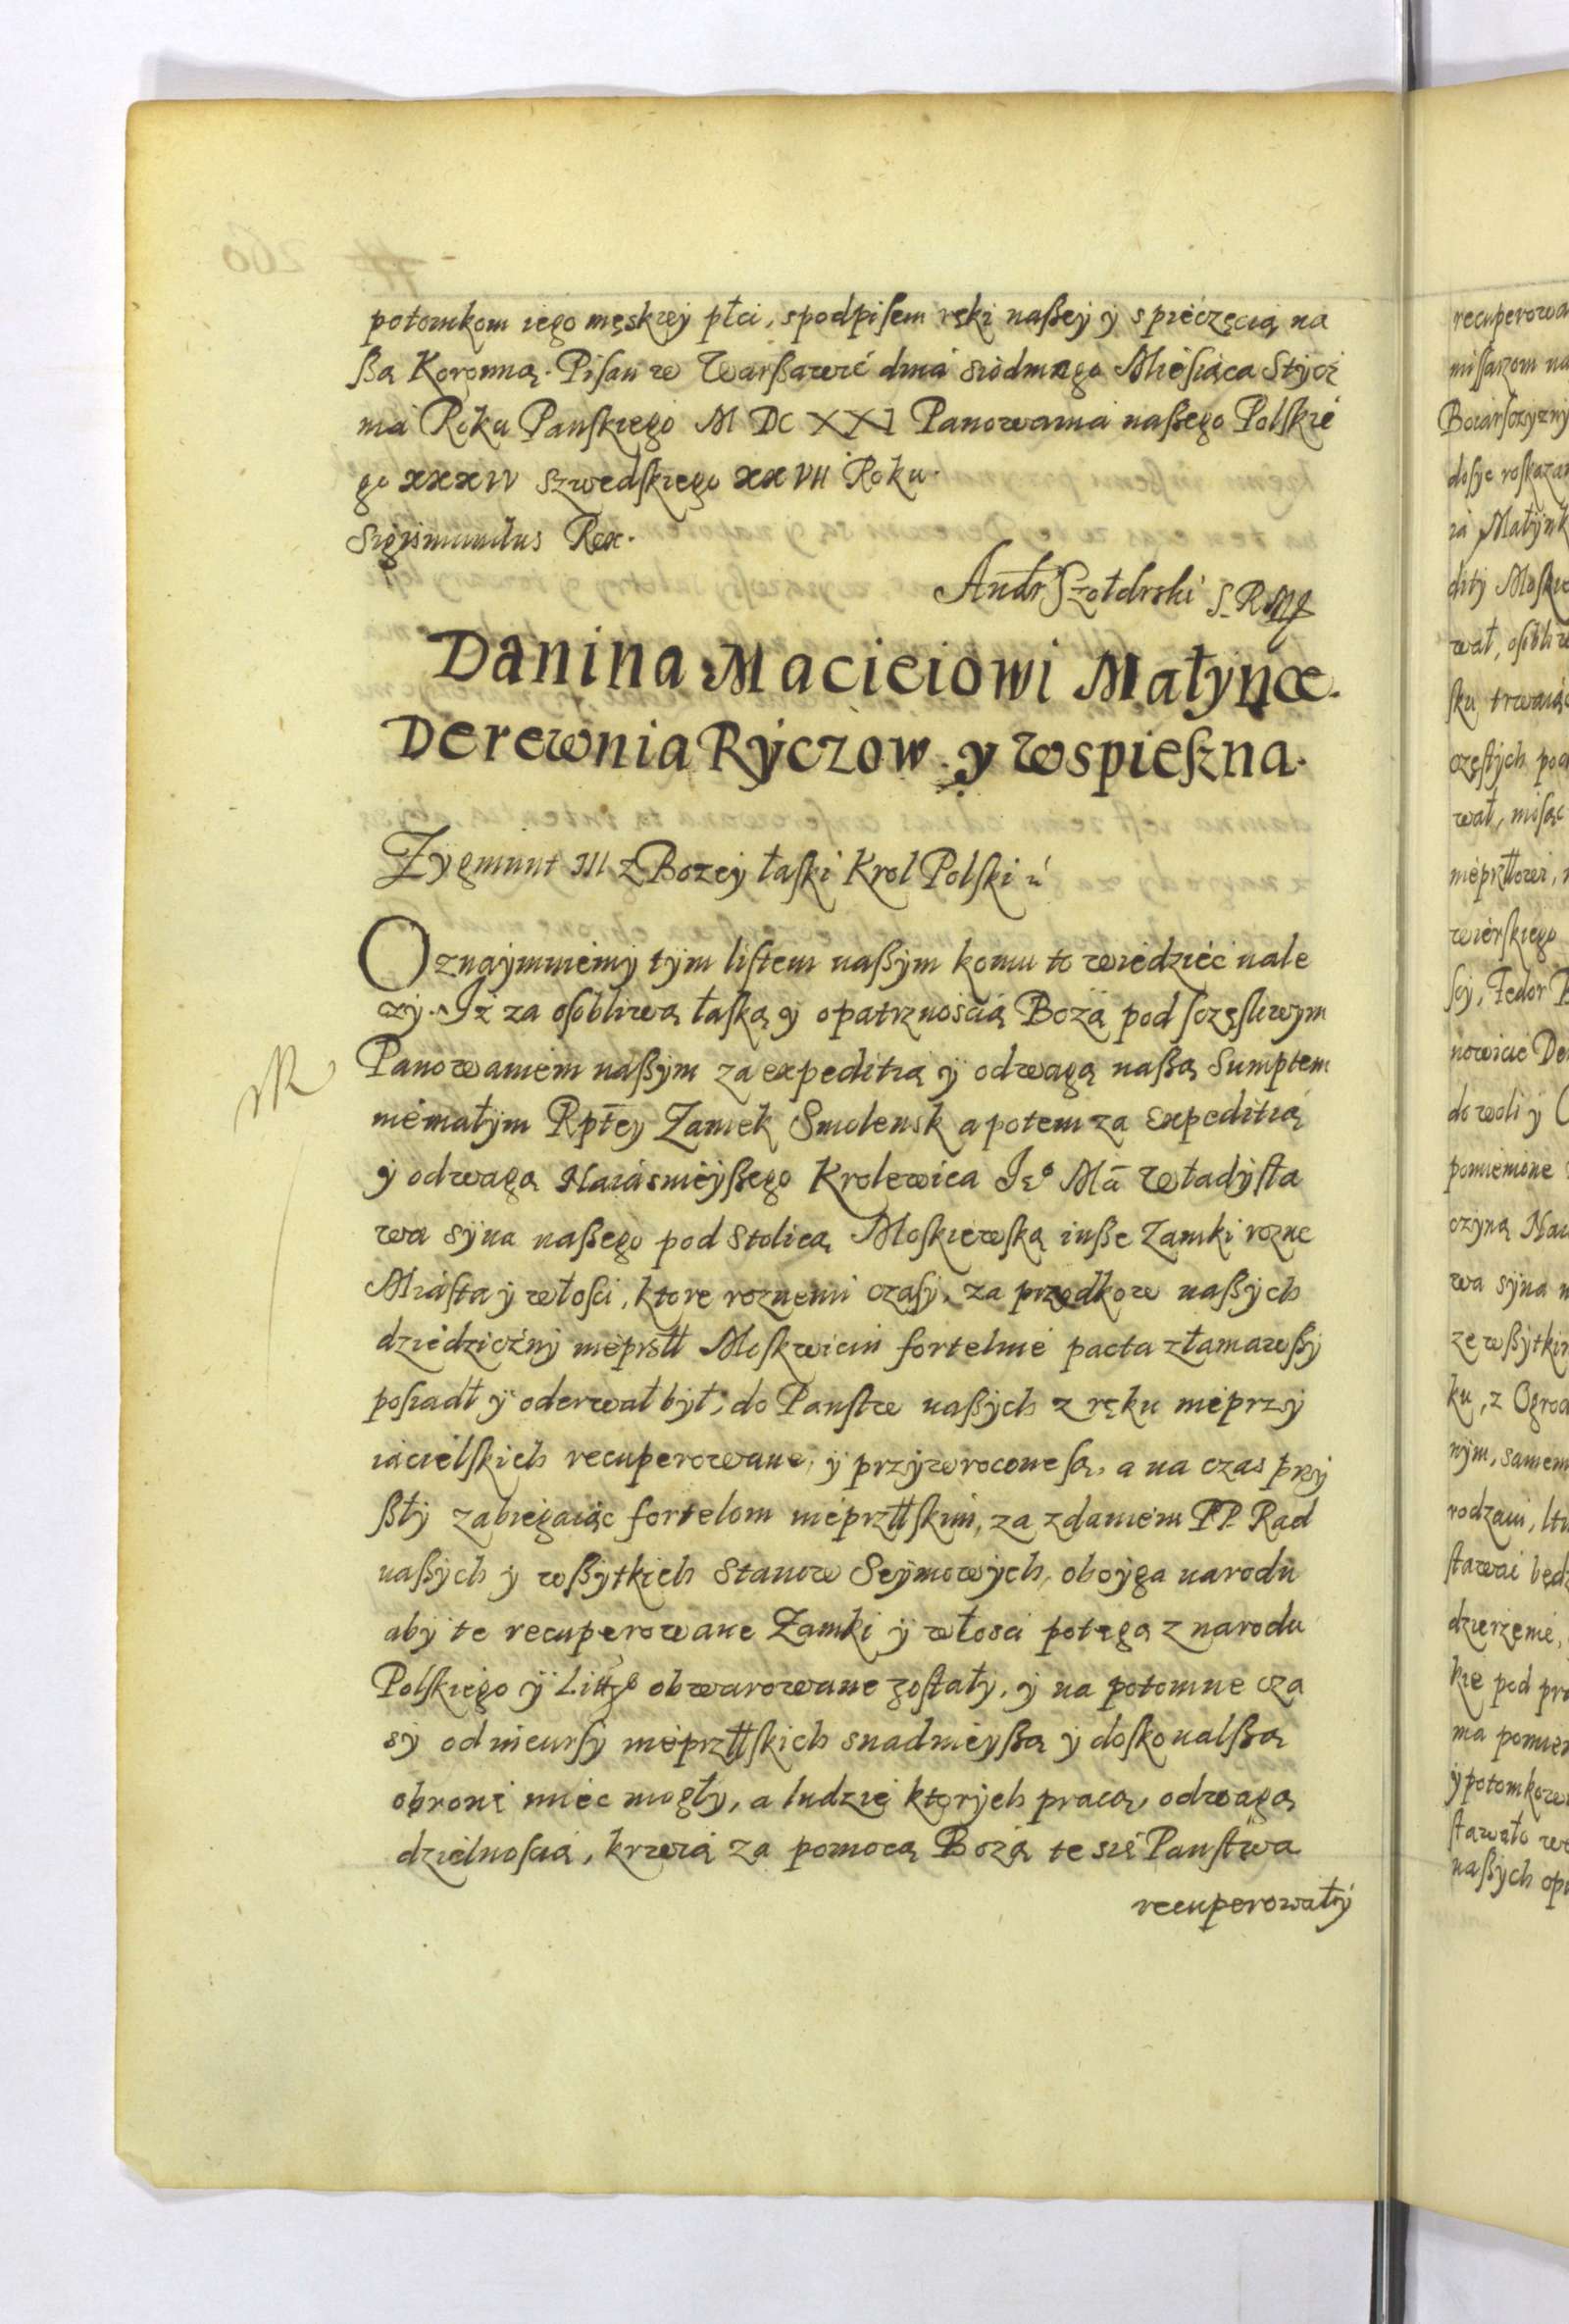 potomkom iego męskiey płci, spodpisem ręki naßey y spieczęcią na
ßą Koronną. Pisan w Warßawie dnia siodmego Miesiąca Stycz
nia Roku Panskiego M DC XXI Panowania naßego Polskie
go XXXIV Szwedskiego XXVII Roku.
Sigismundus Rex.
Andr Szołdrski S. R. Mp
Danina Macieiowi Małynce.
Derewnia Ryczow y Wspießna.
Zygmunt III z Bozey łaski Krol Polski
Oznaymuiemy tym listem naßym komu to wiedzieć nale
ży. Iż za osobliwą łaską y opatrznoscią Bożą pod sczęsliwym
Panowaniem naßym za expeditią y odwagą naßą Sumptem
niemałym Rptey Zamek Smolensk a potem za Expeditią
y odwagą Naiasnieyßego Krolewica Je° Mci Władysła
wa syna naßego pod Stolicą Moskiewską inße Zamki rozne
Miasta y włosci, ktore roznemi czasy, za przodkow naßych
dziedziczny nieprztl Moskwicin fortelnie pacta złamawßy
posiadł y oderwał był, do Panstw naßych z ręku nieprzy
iacielskich recuperowane, y przywrocone są, a na czas przy
ßły zabiegaiąc fortelom nieprztlskim, za zdaniem PP. Rad
naßych y wßytkich Stanow Seymowych oboyga narodu
aby te recuperowane Zamki y włosci potęgą z narodu
Polskiego y Littgo obwarowane zostały, y na potomne cza
sy od incursy nieprztlskich snadnieyßą y doskonalßą
obronę miec mogły, a ludzie ktorych pracą, odwagą
dzielnoscią, krwią za pomocą Bożą te się Panstwa
recuperowały
260
recuperowa
missarzom na
Boiarsczyzny
dosyc roskazan
ia Małynk
dity Moskie
wał, osobliw
sku trwaiąc
częstych pod
wał, niosąc
nieprztlowi,
wierskiego
scy, Fedor
nowicie De
do woli y
pomienione
czyną Nai
wa syna n
ze wßytkim
ku, z Ogrod
nym, samem
rodzaiu,
stawai będz
dzierżenie,
kie pod pr
ma pomien
y potomkow
stawało w
naßych op